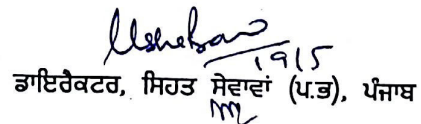 19/5
ਡਾਇਰੈਕਟਰ, ਸਿਹਤ ਸੇਵਾਵਾਂ (ਪ.ਭ), ਪੰਜਾਬ